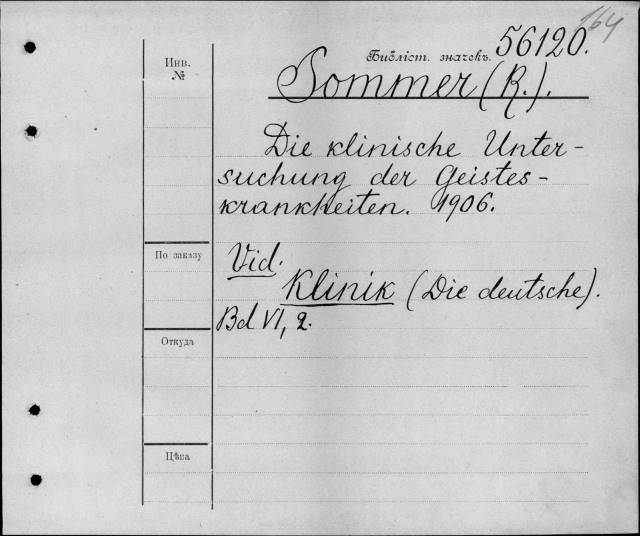 164
Библіот. значекъ. 56120.
Инв.
№
Sommer (R.).
Die klinische Unter-
suchung der Geistes-
krankheiten. 1906.
По заказу
Vid.
Klinik (Die deutsche).
Bd VI, 2.
Откуда
Цѣна